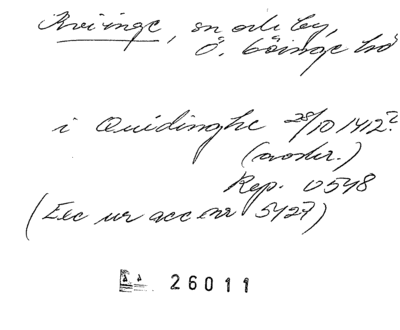 Kvinge, sn och by,
Ö. Göinge hd
i Quidinghe 28/10 1412?
(avskr.)
Rep. 0548
(Exc ur acc nr 5427)
26011